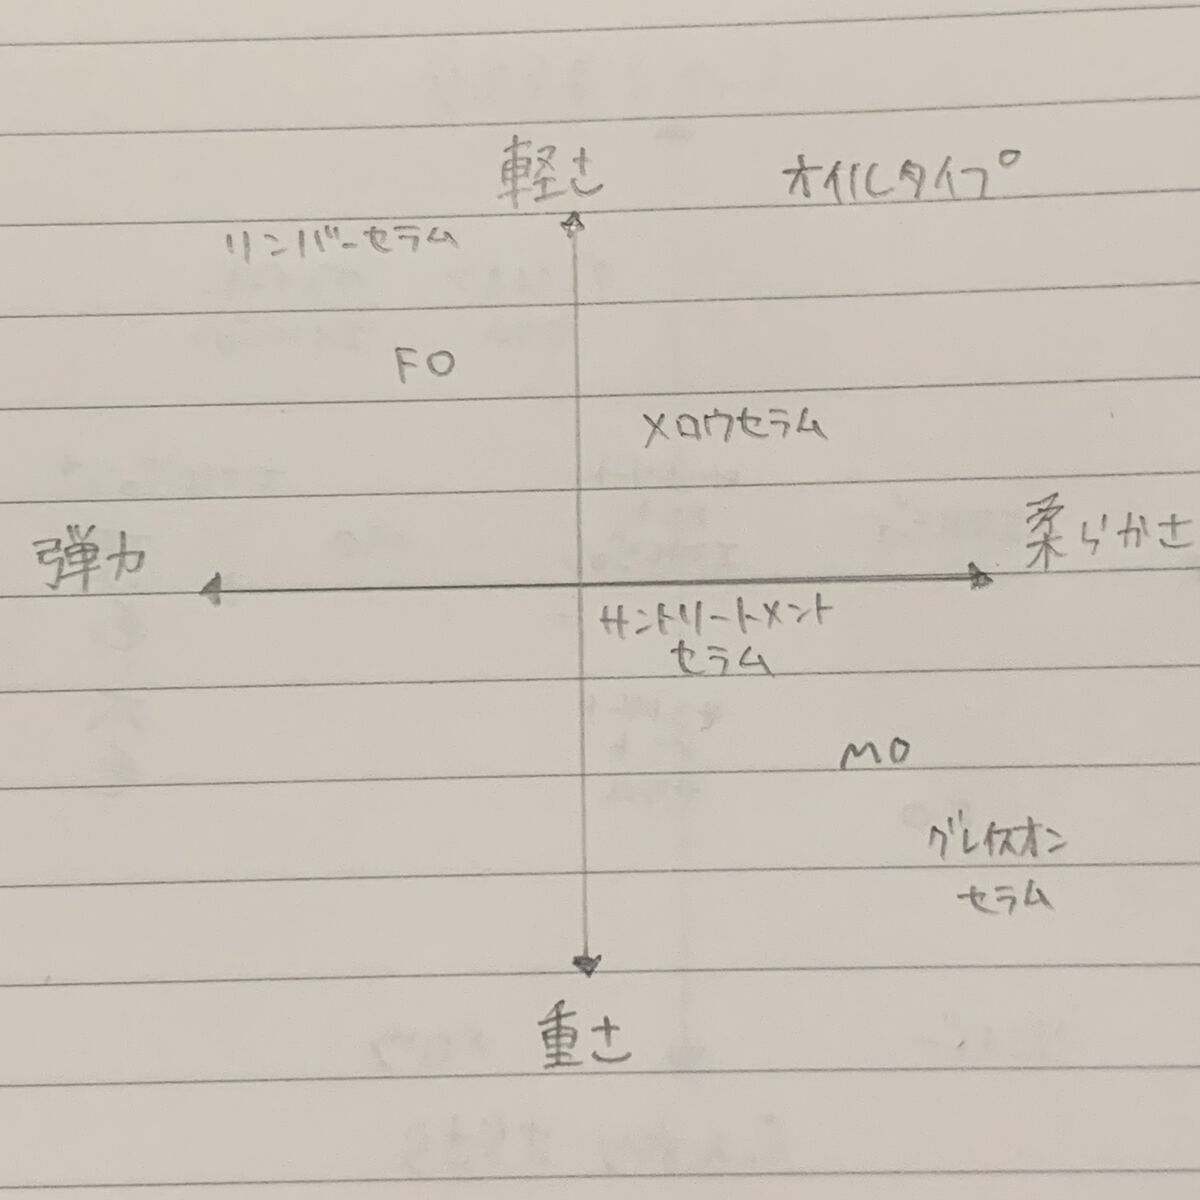 軽さ
オイルタイプ
リンバーセラム
FO
メロウセラム
弾力
柔らかさ
サントリートメント
セラム
MO
グレイスオン
セラム
重さ